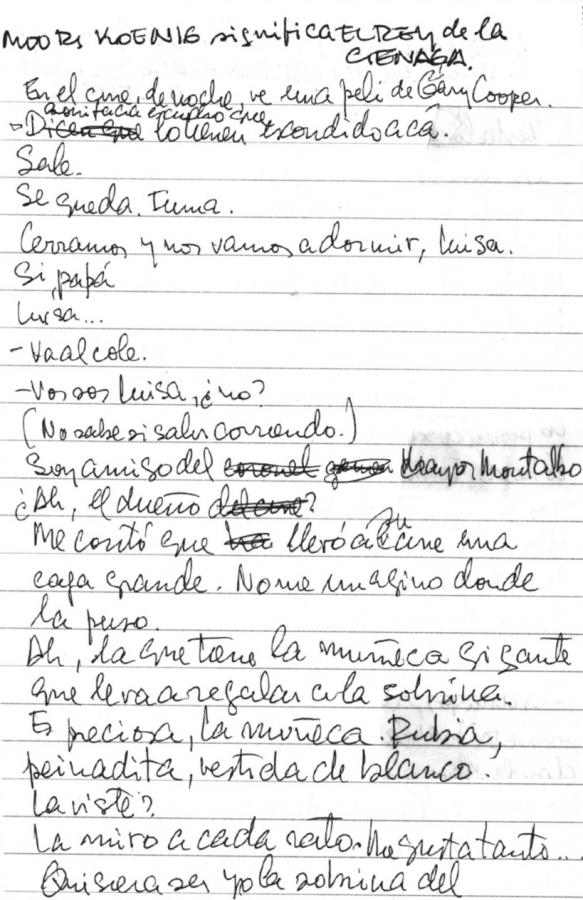 MOORI KOENIG significa EL REY de la
CIENAGA.
En el cine, de noche, ve una peli de Gary Cooper.
que
- Dicen que lo tienen escondido acá.
Sale.
Se queda. Fuma.
Cerramos y nos vamos a dormir, Luisa.
Si, papá
Luisa...
- Va al cole.
- Vos sos Luisa, ¿no?
(No sabe si salir corriendo.)
Soy amigo del coronel Mayor Montalbo
¿Ah, el dueño del cine?
su
Me contó que llevó a cine una
caja grande. No me imagino donde
la puso.
Ah, la que tiene la muñeca gigante
que le va a regalar a la sobrina.
Es preciosa, la muñeca. Rubia,
peinadita, vestida de blanco.
La viste?
La miro a cada rato. Me gusta tanto...
Quisiera ser yo la sobrina del